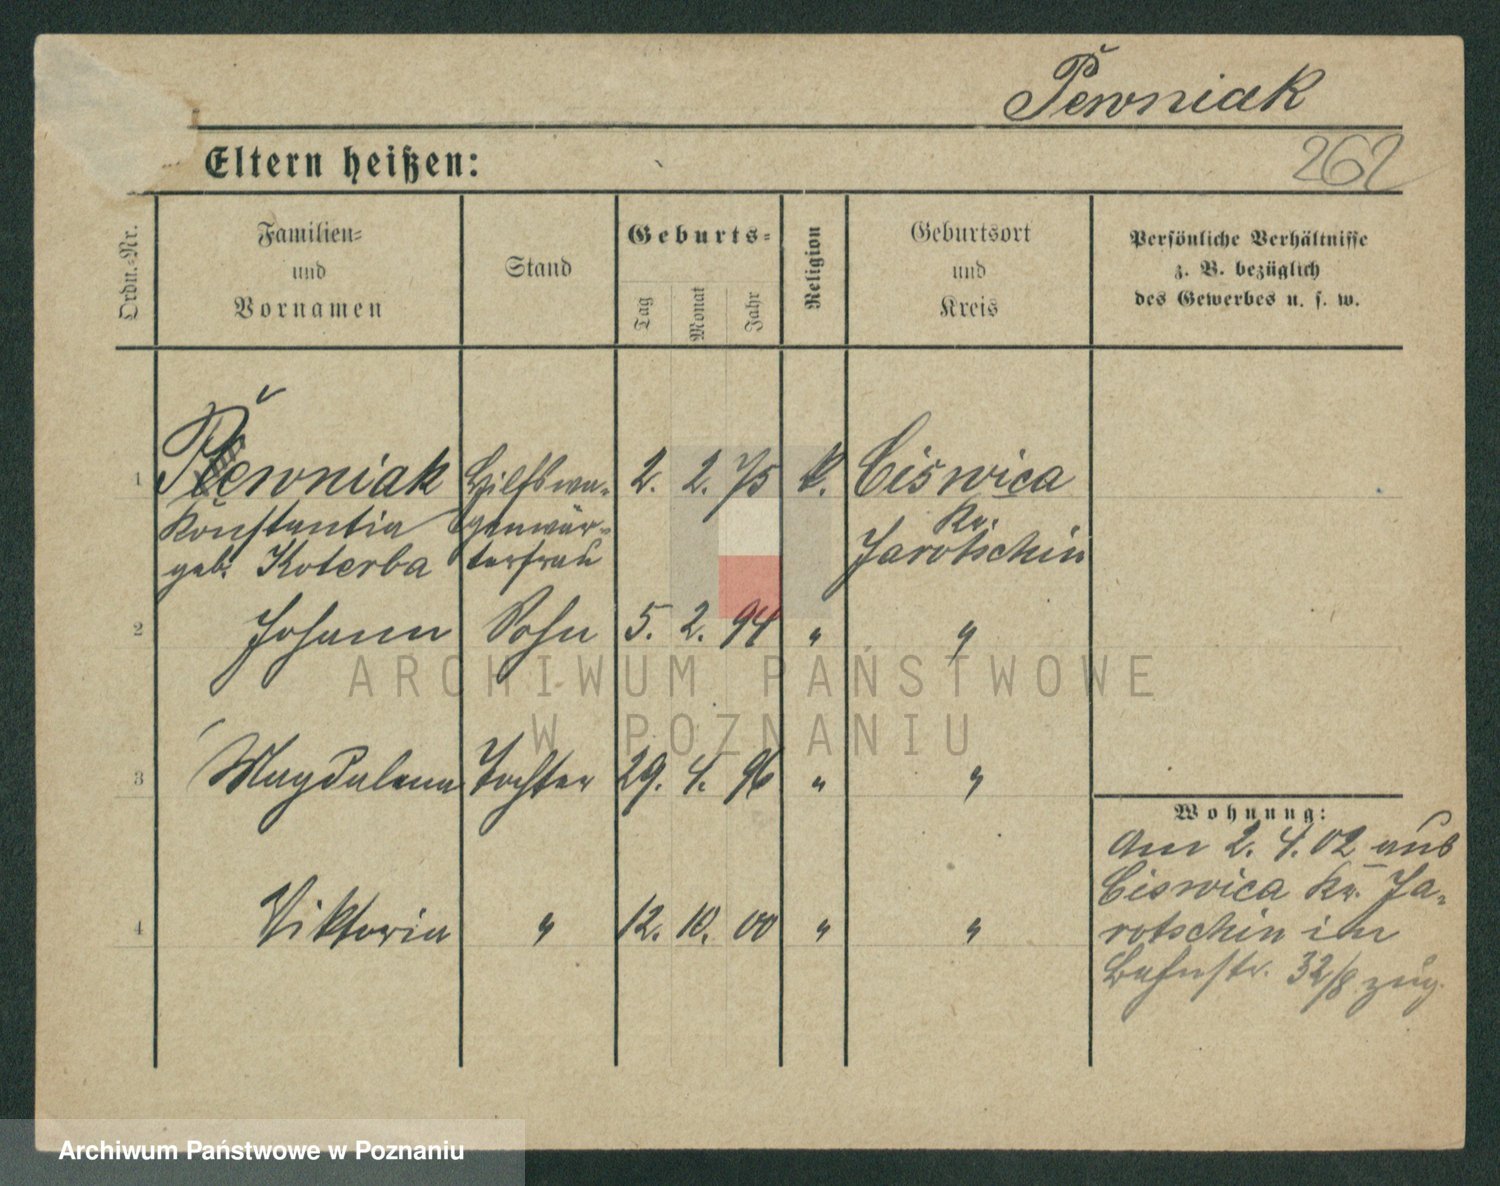 Pewniak
262
Eltern heißen:
Ordn.-Nr.
Familien-
und
Vornamen
Stand
Geburts-
Tag
Monat
Jahr
Religion
Geburtsort
und
Kreis
Persönliche Verhältnisse
z. B. bezüglich
des Gewerbes u. s. w.
1 Pewniak Hilfswa- 2. 2. 75 k. Ciswica
Konstantia genwär- Kr.
geb. Koterba terfrau Jarotschin
2 Johann Sohn 5. 2. 94 " "
ARCHIWUM PAŃSTWOWE
W POZNANIU
3 Magdalena Tochter 29. 4. 96 " "
Wohnung:
Am 2. 4. 02 aus
Ciswica Kr. Ja-
4 Viktoria " 12. 10. 00 " "
rotschin in
Bahnstr. 32/8 zug.
Archiwum Państwowe w Poznaniu